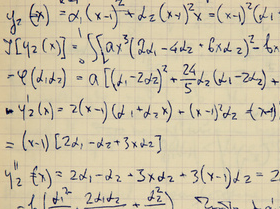 y₂(x) = α₁(x-1)² + α₂(x-1)²x = (x-1)²(α₁
J[y₂(x)] = ∫₀¹ { a x³(2α₁ - 4α₂ + 6xα₂)² - b
-φ(α₁α₂) = a[(α₁-2α₂)² + 24/5 α₂(α₁-2α₂) +
- y₂'(x) = 2(x-1)(α₁+α₂x) + (x-1)²α₂
= (x-1)[2α₁ - α₂ + 3xα₂]
y₂''(x) = 2α₁ - α₂ + 3xα₂ + 3(x-1)α₂ = 2